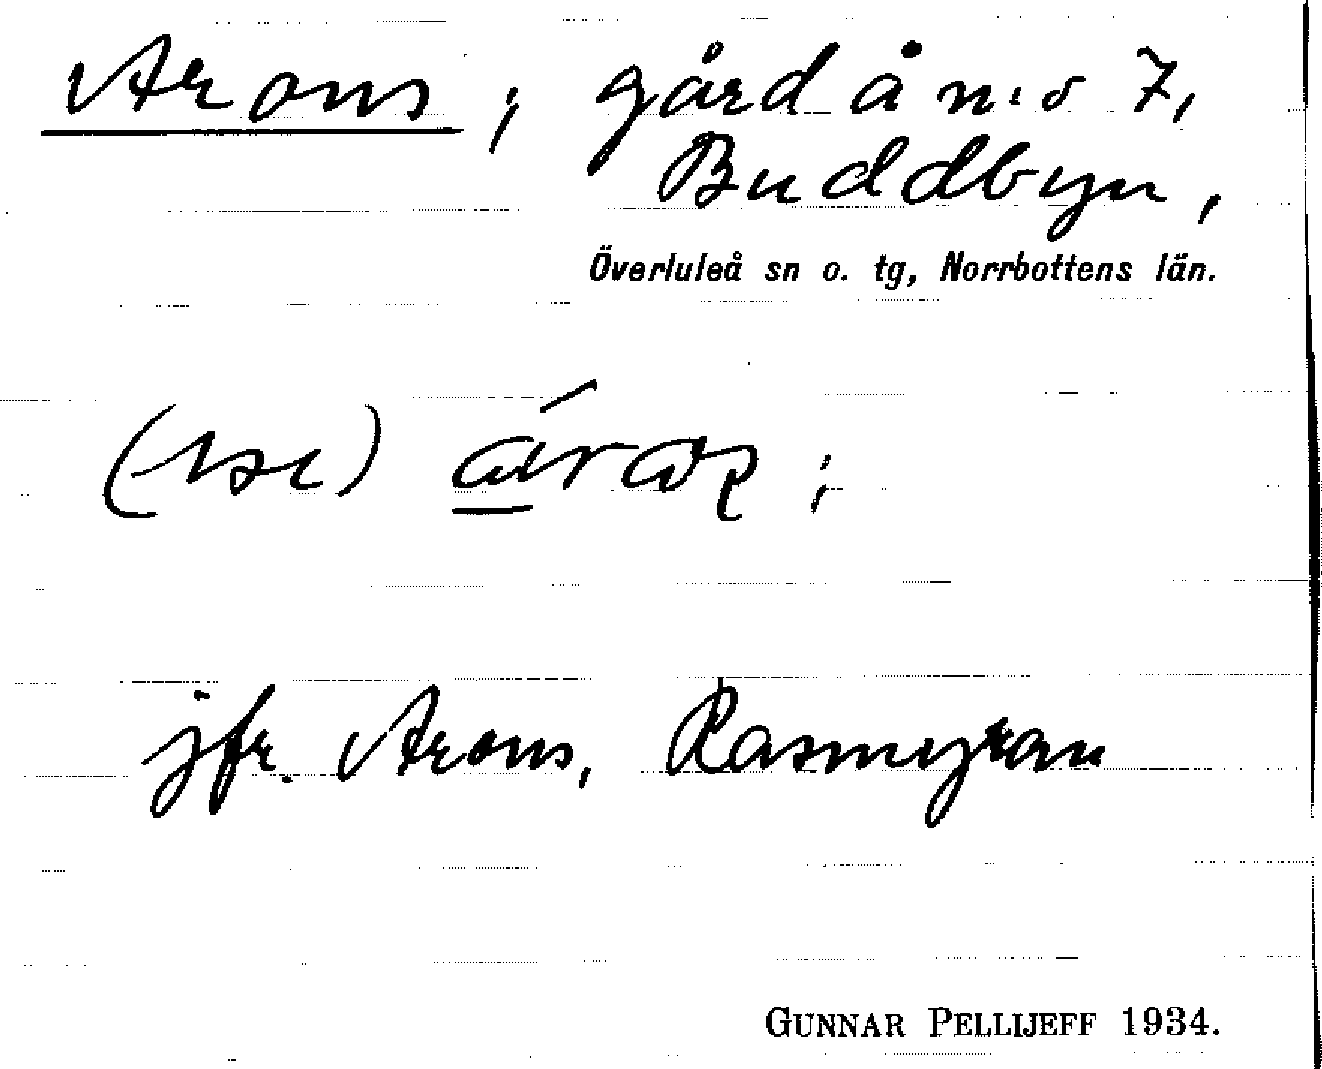 Arons, gård å n:o 7,
Buddbyn,
Överluleå sn o. tg, Norrbottens län.
jfr. Arons, Rasmyran
GUNNAR PELLIJEFF 1934.